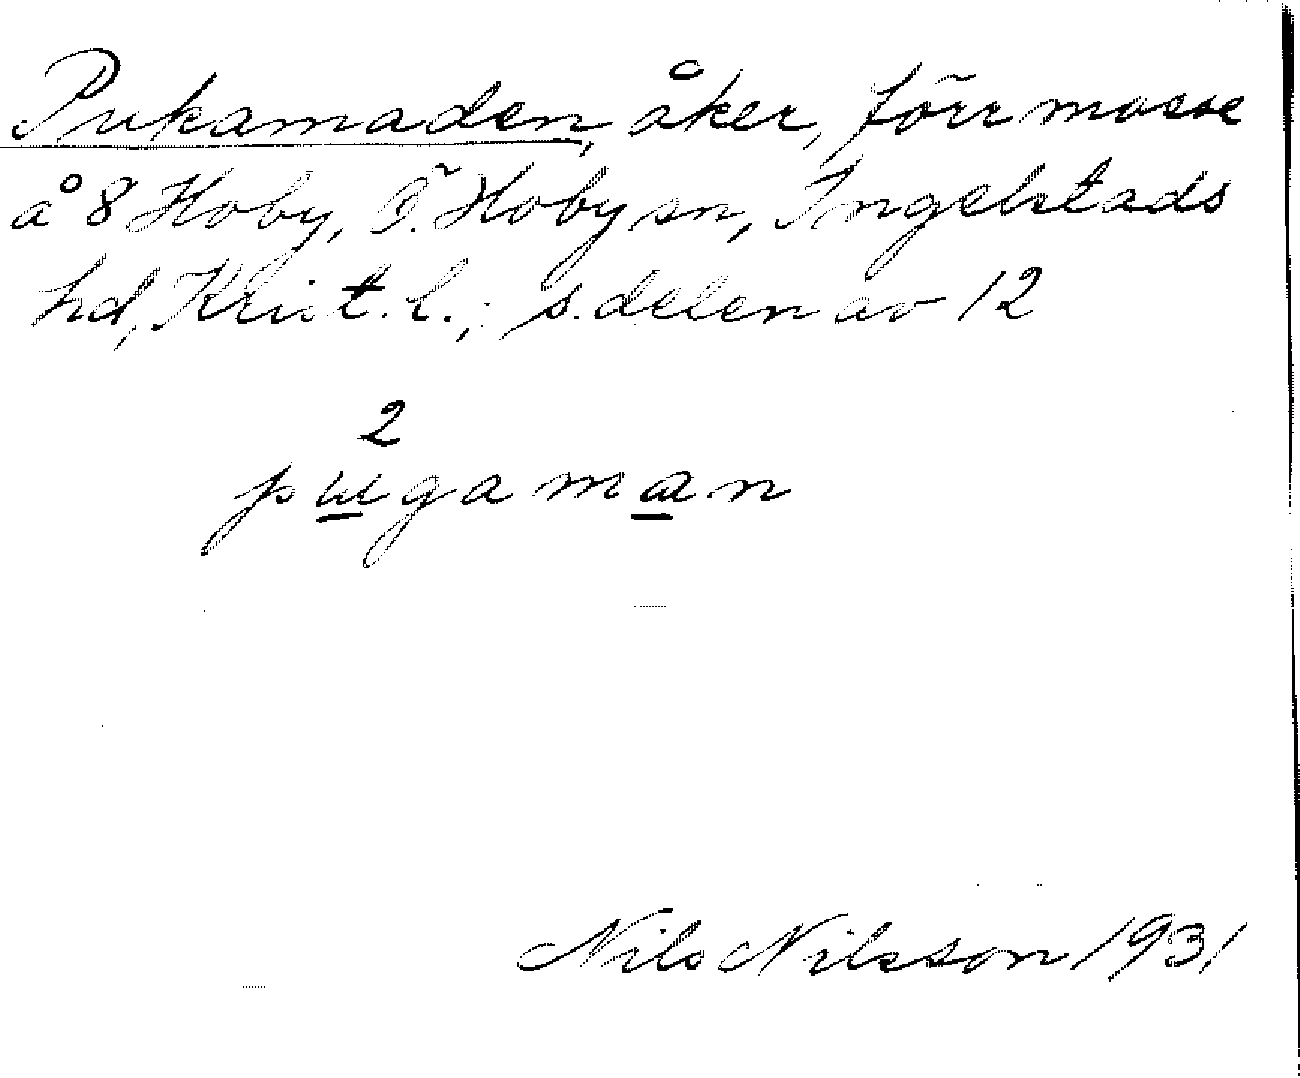 Pukamaden, åker, förr mosse
å 8 Hoby, Ö. Hoby sn, Ingelstads
hd, Krist. l.; s. delen av 12
2
pɯgamɑn
Nils Nilsson 1931